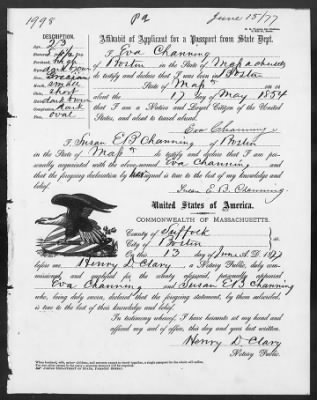 1998
Pa
June 15/77
DESCRIPTION.
Age, 23
Affidavit of Applicant for a Passport from State Dept.
I Eva Channing
of Boston in the State of Massachusetts
do testify and declare that I was born in Boston
in the State of Mass on
the 17 day of May 1854
that I am a Native and Loyal Citizen of the United
States, and about to travel abroad.
high
Grecian
small
short
dark brown
dark
oval
Eva Channing
I Susan E B Channing of Boston
in the State of Mass to testify and declare that I am per-
sonally acquainted with the above named Eva Channing and
that the foregoing declaration by her signed is true to the best of my knowledge and
belief.
Susan E. B. Channing.
United States of America.
COMMONWEALTH OF MASSACHUSETTS.
County of Suffolk
City of Boston
On this 13 day of June A. D. 1877
before me Henry D. Clary, a Notary Public, duly com-
missioned and qualified for the county aforesaid, personally appeared
Eva Channing and Susan E B Channing
who, being duly sworn, declared that the foregoing statement, by them subscribed,
is true to the best of their knowledge and belief.
In testimony whereof, I have hereunto set my hand and
affixed my seal of office, this day and year last written.
Henry D. Clary
Notary Public.